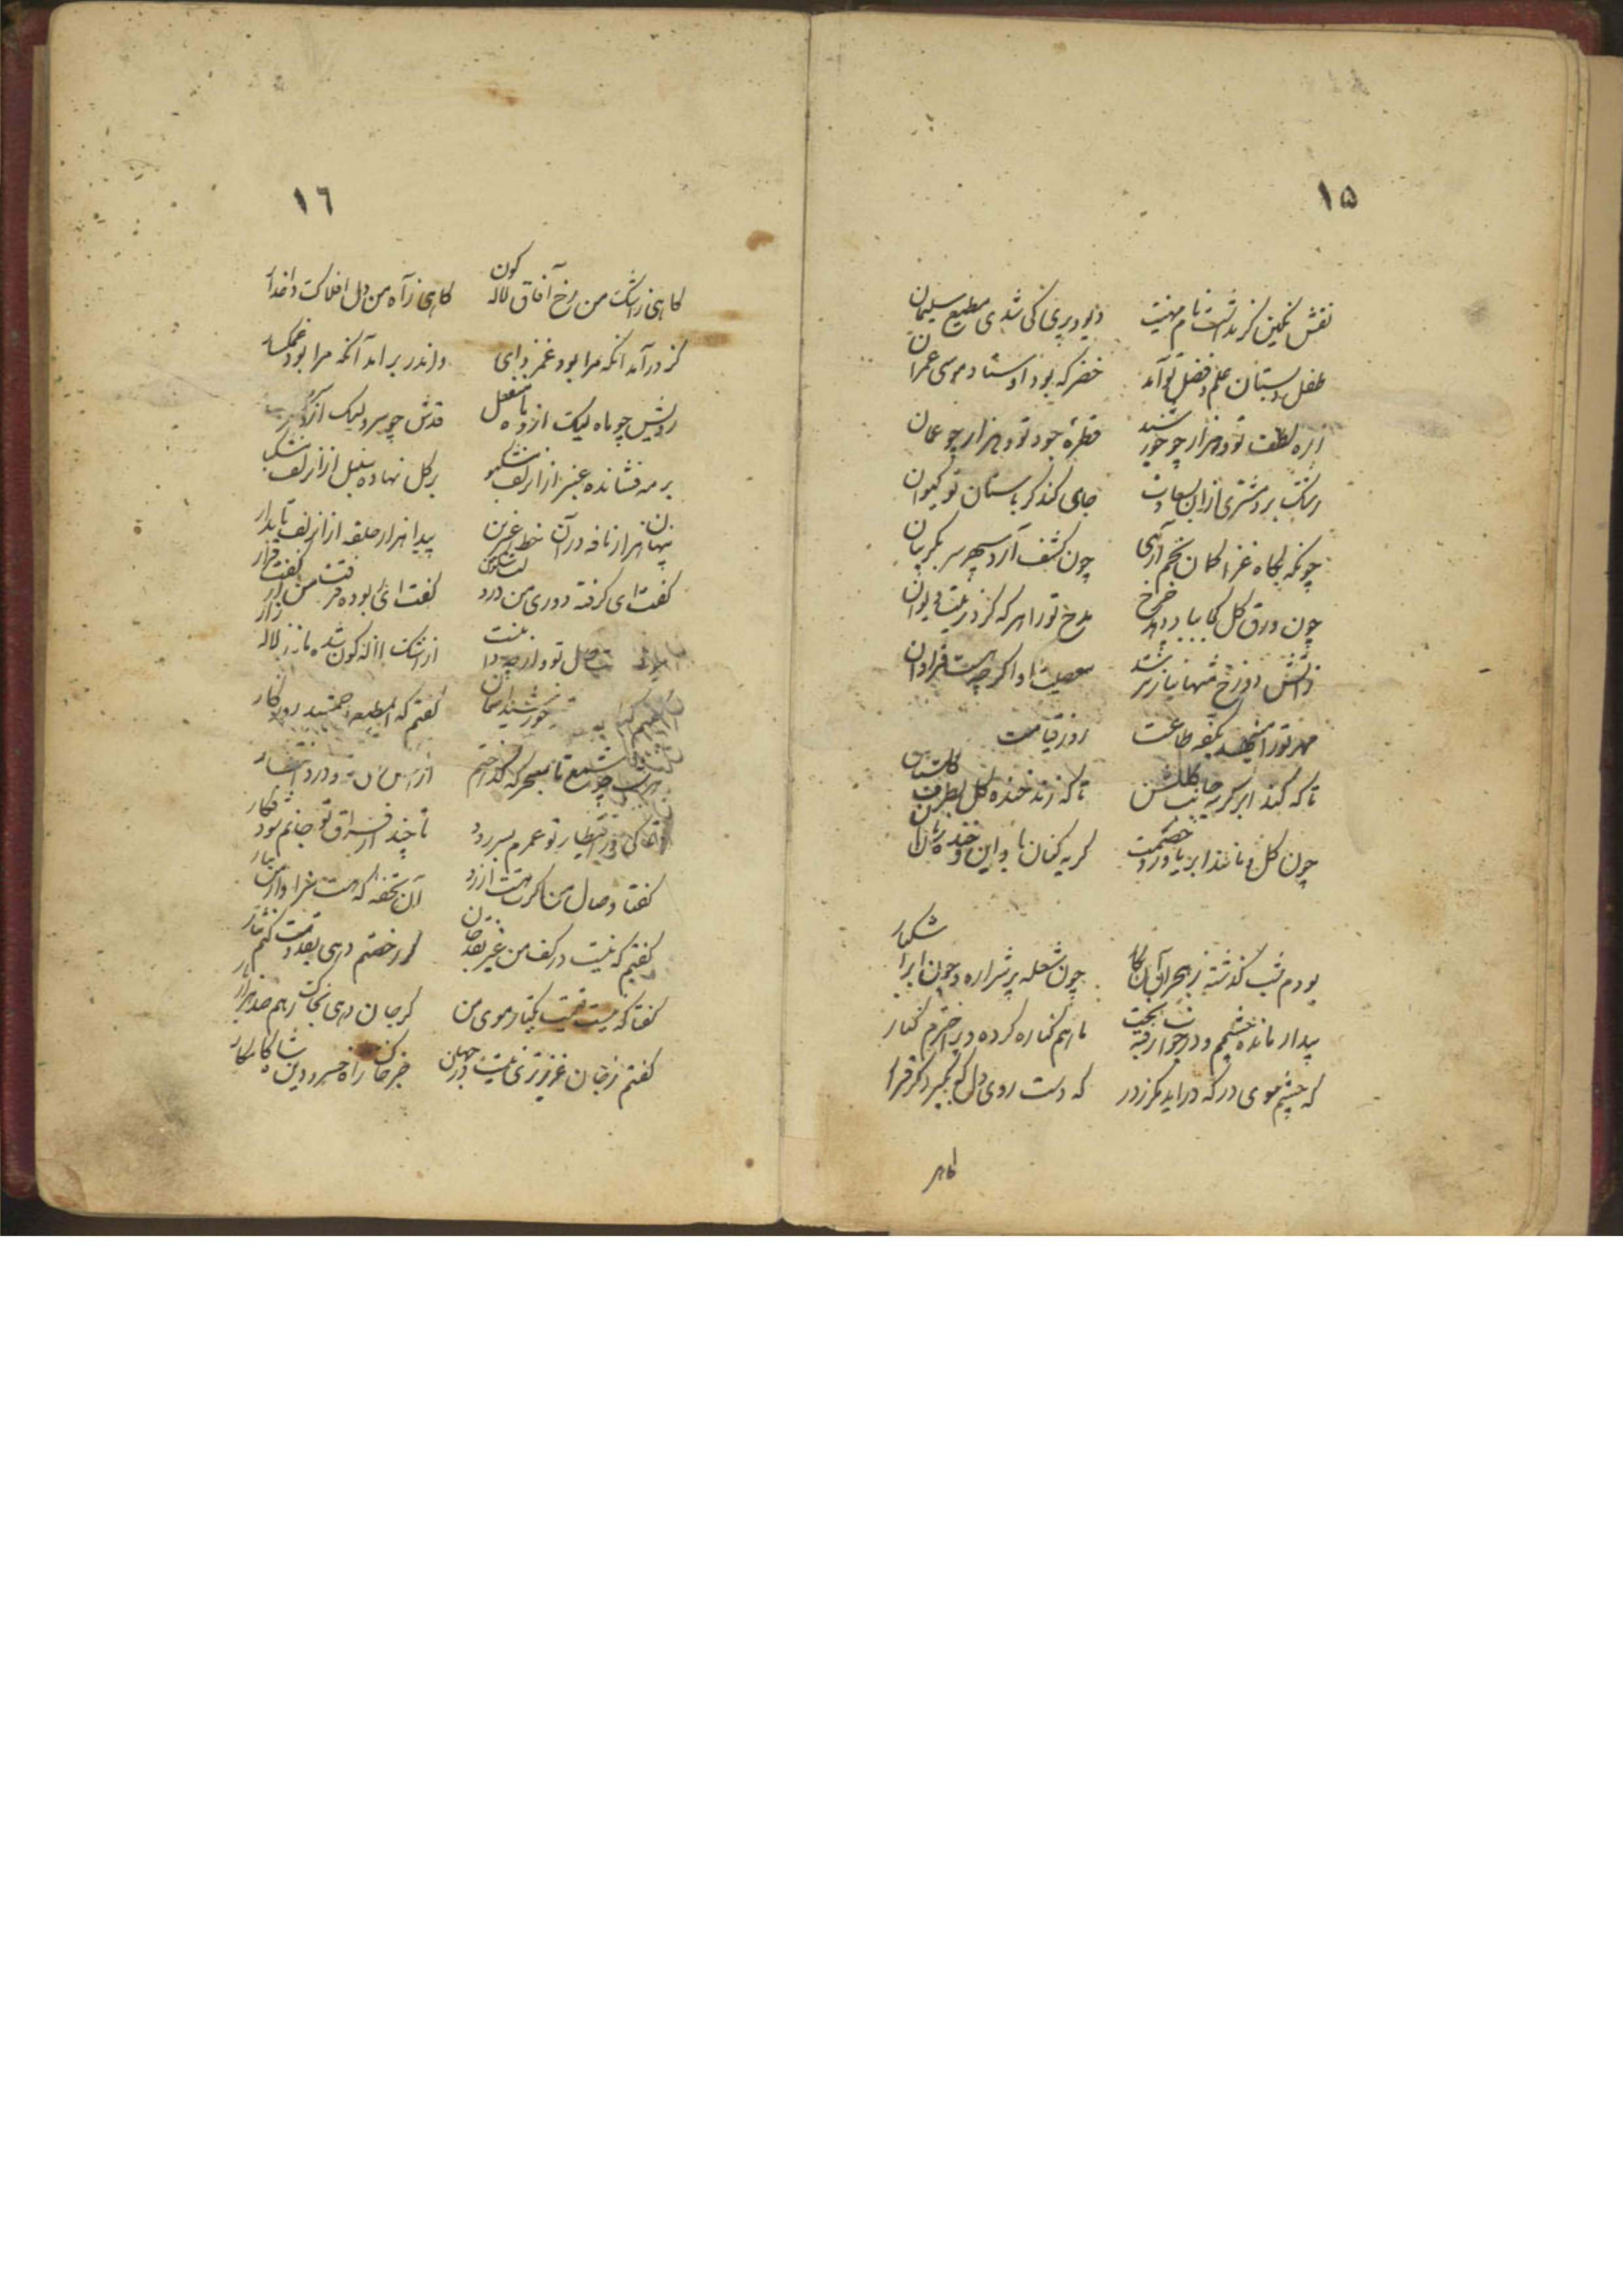 ۱۵
نقش نگین گر نداشت نام مهینت دیو و پری کی شدی مطیع سلیمان
طفل دبستان علم و فضل تو آمد خضر که بود اوستاد موسی عمران
ذره لطف تو دو هزار چو خورشید قطره جود تو دو هزار چو عمان
رشک برد مشتری از این سعادت جای کند گر باستان تو کیوان
چونکه بگاه غزا کمان بخم آری چون کشف آرد سپهر سر بگریبان
چون ورق گل بباد در دهد چرخ مدح تو را هر که کز در دیوان
زآتش دوزخ منهیا نرسد معصیت او اگر چه هست فراوان
مهر تو را بکفه طاعت روز قیامت
تا که کند ابر گریه جانب گلشن تا که زند خنده گل بطرف گلستان
چون گل و مانند ابر یاور و خصمت گریه کنان باد این و خنده زنان آن
بودم شب گذشته ز هجران آن نگار چون شعله پر شراره و چون ابر اشکبار
بیدار مانده چشمم و در خواب رفته بخت یارم کناره کرده و پر اخترم کنار
که چشم سوی در که در آید مگر ز در که دست روی دل که بگیرد مگر قرار
گاهی
۱٦
گاهی ز اشک من رخ آفاق لاله کون گاهی ز آه من دل افلاک داغدار
کز در آمد آنکه مرا بود غمزدای و اندر بر آمد آنکه مرا بود غمگسار
رویش چو ماه لیک از او ماه منفعل قدش چو سرو لیک از او سرو
بر مه فشانده عنبر از آن زلف مشکبو بر گل نهاده سنبل از آن زلف مشکبار
پنهان هزار نافه در آن خط عنبرین پیدا هزار حلقه از آن زلف تابدار
گفت ای گرفته دوری من از دلت سکون گفت ای ربوده فرقت من از کفت قرار
وصل تو دارد از اشک لاله کون شده مانند لاله زار
گفتم که خورشید آسمان گفتم که ای مطیع جمشید روزگار
هر شب چو شمع تا بسحرگه گداختم از و درد انتظار
تا کی در انتظار تو عمرم بسر رود تا چند از فراق تو جانم بود فکار
گفتا وصال من گرت هست آرزو آن تحفه که هست سزاوار من بیار
گفتم که نیست در کف من غیر نقد جان گر رخصتم دهی بقدومت کنم نثار
گفتا که نیست قیمت یکتار موی من گر جان دهی بخاک رهم صد هزار بار
گفتم ز جان عزیزتری نیست در جهان جز خاک راه خسرو دین شاه کامکار